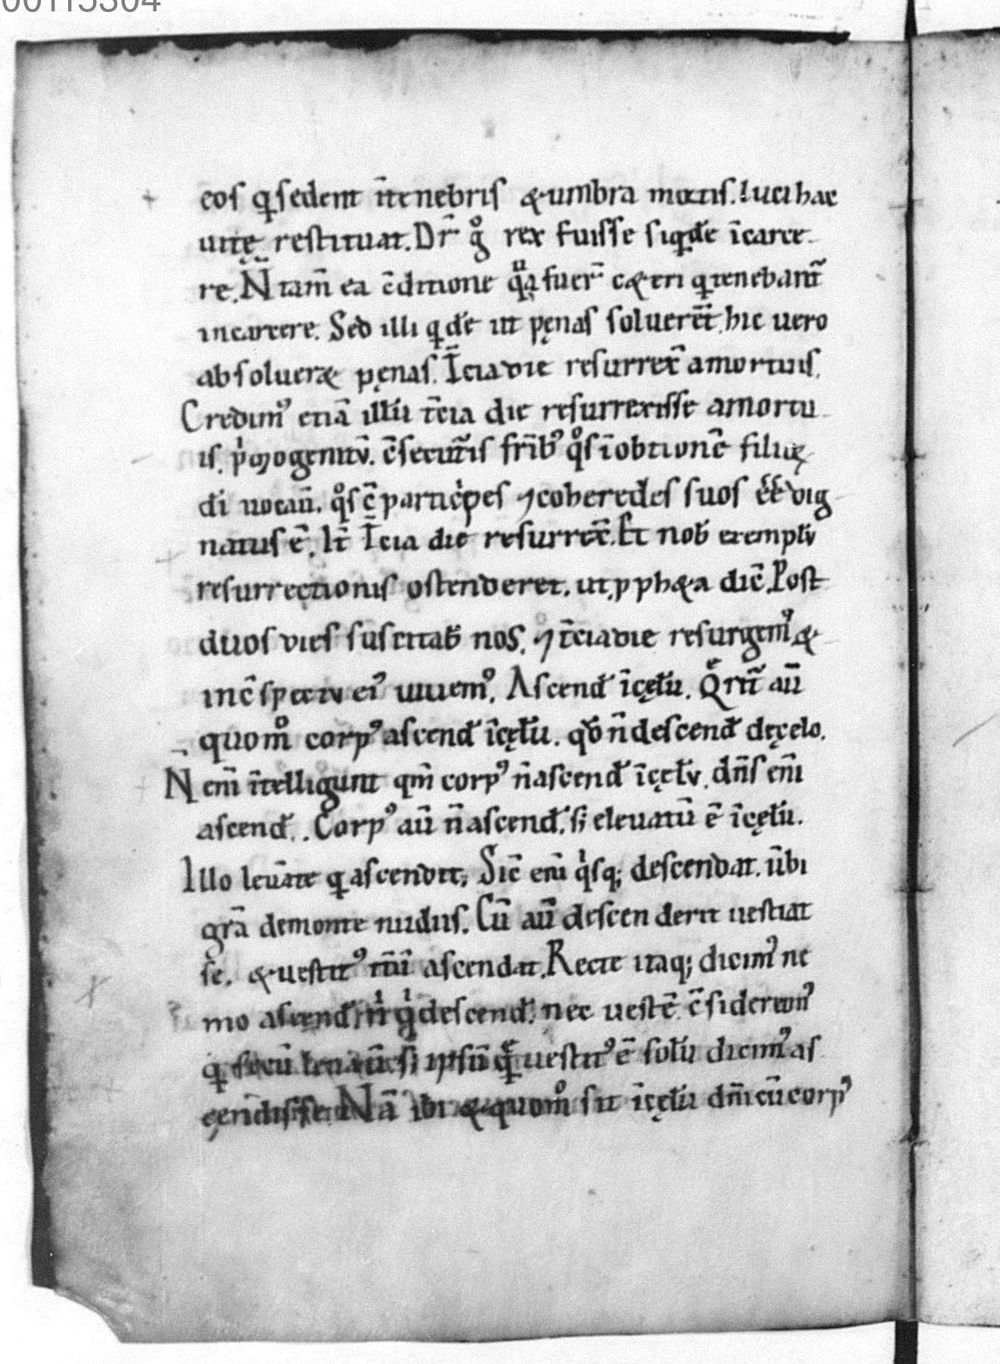 00115304
eos q̨ sedent ītenebris &umbra mortis. luci hac
uitę restituat. Dr̄ g̊ rex fuisse siq̨de īcarce
re. N̄ tam̄ ea c̄ditione q̨a fuer̄ c&eri q̨ tenebant̄
incarcere. Sed illi q̨de ut pęnas soluer̄et. hic uero
absoluer& pęnas. T̄cia die resurrex̄ amortuis.
Credimꝰ etiā illū t̄cia die resurrexisse amortu
is. pͥmogenitū. c̄secutꝭis fr̄ibꝰ q̊s īobtionē filiꝭ
dī uocaū. q̊s ꝑticipes ⁊coheredes suos eē dig
natus ē. It̄ T̄cia die resurrex̄. Et nob̄ exemplū
resurrectionis ostenderet. ut, p ph&a dic̄. Post
duos dies suscitab̄ nos. ⁊ t̄ciadie resurgemꝰ &
inc̄spectu eiꝰ uiuemꝰ. Ascend̄ īcęlū. Qͣrit̄ aū
quom̊ corpꝰ ascend̄ īcęlū. qđ n̄ descend̄ dęcelo.
N̄ enī ītelligunt qm̄ corpꝰ n̄ascend̄ īcęlū. dn̄s enī
ascend̄. Corpꝰ aū n̄ascend̄. sꝫ eleuatū ē īcęlū.
Illo leuāte q̨ ascendit, Sic̄ enī qͥsqꝫ descendat. ūbi
grā demonte nudus. Cū aū descenderit uestiat
se. &uestitꝰ itū ascendat. Recte itaqꝫ dicimꝰ ne
mo ascend̄ n̄ qͥ descend̄. nec uestē c̄sideremꝰ
ipsū uestitꝰ ē solū dicimꝰ as
cendisse. Nā ibi &quom̊ sit īcęlū dn̄i cū corpꝰ